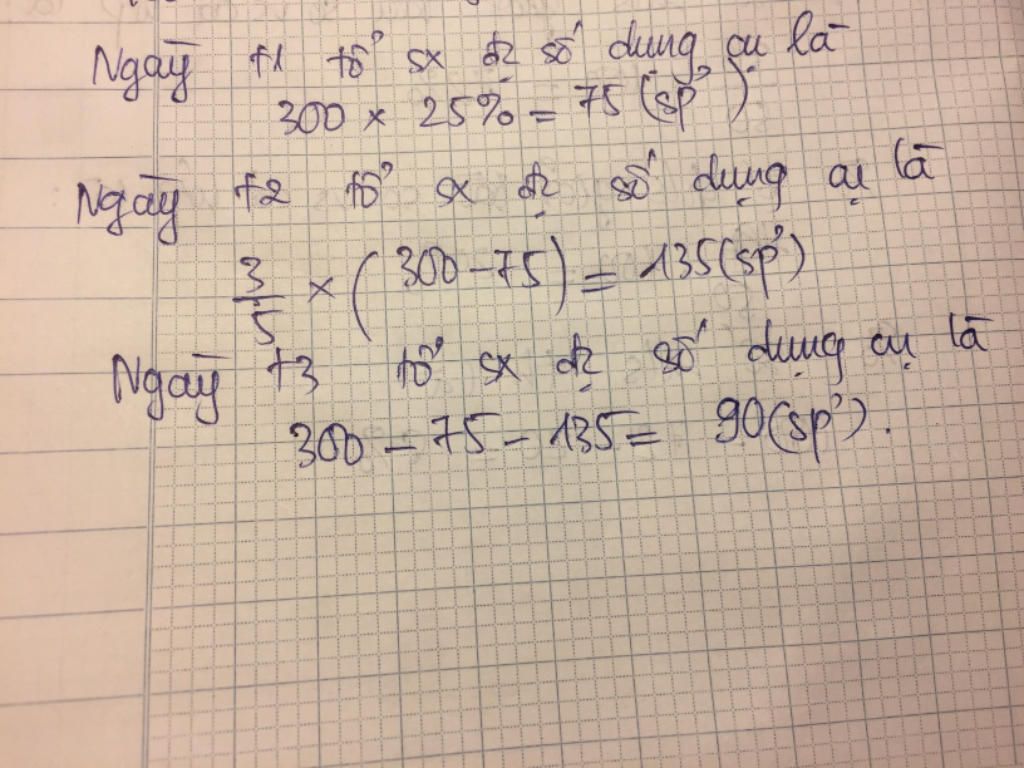 Ngày t1 tổ sx đc số dụng cụ là
300 × 25% = 75 (sp')
Ngày t2 tổ sx đc số dụng cụ là
3/5 × (300 - 75) = 135 (sp')
Ngày t3 tổ sx đc số dụng cụ là
300 - 75 - 135 = 90 (sp').